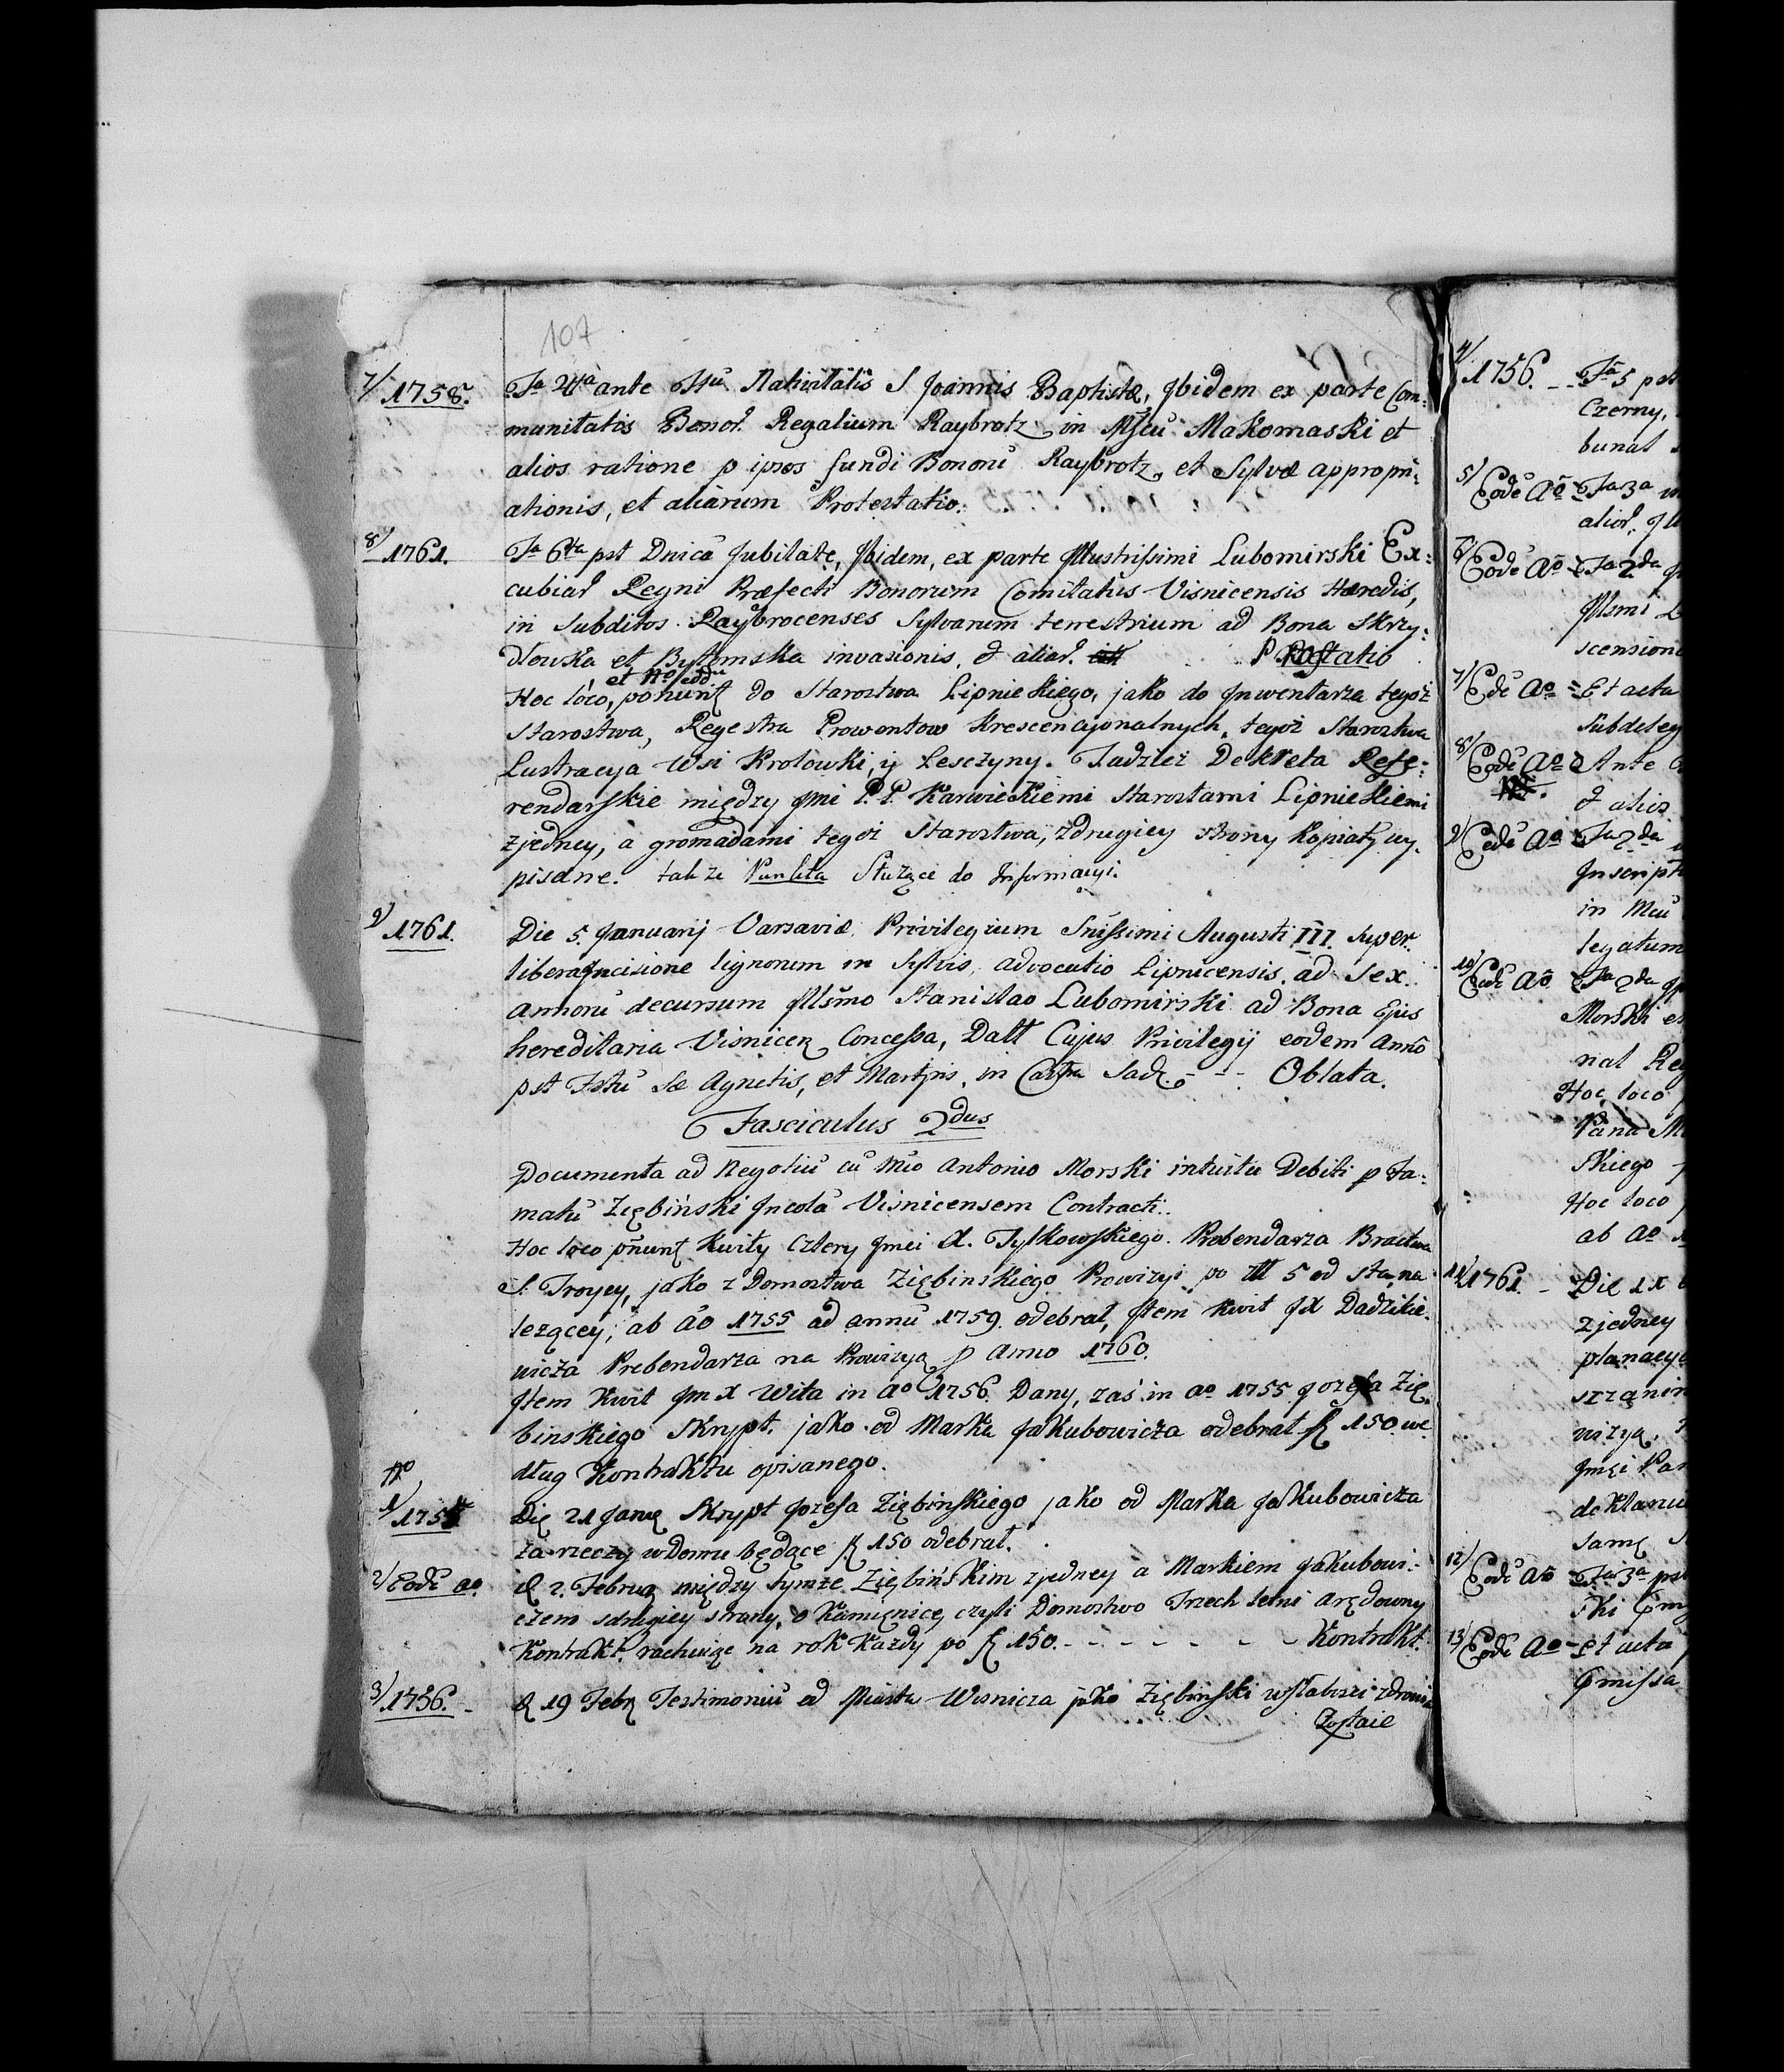 107
7/ 1758. Fa 4ta ante Ftũ Nativitatis S. Joannis Baptistæ, Ibidem ex parte Com-
munitatis Bonor. Regalium Raybrotz in Mfcu Makomaski et
alios ratione p ipsos fundi Bonorũ Raybrotz, et Sylvæ appropri-
ationis, et aliarum Protestatio.
8/ 1761. Fa 6ta pst Dnicã Jubilate, Ibidem, ex parte Illustrissimi Lubomirski Ex-
cubiar Regni Præfecti Bonorum Comitatus Visnicensis Hæredis,
in Subditos Raybrocenses Sylvarum terrestrium ad Bona Skrzy-
dlowka et Bytomska invasionis, & aliar. Prostatio
et No eodũ
Hoc loco, ponunt do Starostwa Lipnickiego, jako do Inwentarza tegoż
Starostwa, Regestra Prowentow Krescencyonalnych, tegoż Starostwa
Lustracya Wsi Krolowki, y Lesczyny. Tudzież Dekreta Refe-
rendarskie między Jmi P.P. Karwickiemi Starostami Lipnickiemi
zjedney, a gromadami tegoż Starostwa, zdrugiey strony Kopiaty wy-
pisane. także Punkta Służące do Informacyi.
9/ 1761. Die 5. Januarij Varsaviæ Privilegium Snissimi Augusti III. super
libera Incisione lignorum in Sylvis, advocatio Lipnicensis, ad Sex
annorũ decursum Illsmo Stanislao Lubomirski ad Bona Ejus
hereditaria Visnicen Concessa, Datt Cujus Privilegij eodem Anno
pst Fstũ Sæ Agnetis, et Martyris, in Castra Sadc. - - - Oblata.
Fasciculus 2dus
Documenta ad Negotiũ cũ Mcio Antonio Morski intuitu Debiti p Fa-
matũ Ziębiński Incolã Visnicensem Contracti.
Hoc loco pñunt Kwity Cztery Jmci X. Tylkowskiego Prebendarza Bractwa
S. Troycy, jako z Domostwa Ziębinskiego Prowizyi po 5 od sta, na
lezącey, ab Ao 1755 ad annũ 1759 odebrał, Item Kwit JX Dadzikie-
wicza Prebendarza na Prowizyą p Anno 1760.
Item Kwit Jm X Wita in Ao 1756. Dany, zaś in ao 1755 Jozefa Zię-
binskiego Skrypt. jako od Marka Jakubowicza odebrał f 150. we-
dług Kontraktu opisanego.
No
1/ 1755 Die 21 Jany Skrypt Jozefa Ziębinskiego jako od Marka Jakubowicza
za rzeczy w Domu będące f 150 odebrał.
2/ Eodẽ ao. D 2. Februa między tymże Ziębińskim zjedney a Markiem Jakubowi-
czem zdrugiey strony, o Kamięnicę, czyli Domostwo Trzech letni Arędowny
Kontrakt. rachuiąc na rok Każdy po f 150. - - - - - - - Kontrakt.
3/ 1756. D 19 Feb Testimoniũ ad Miasta Wisnicza jako Ziębiński wsłabości zdrowia
Zostaie
4/ 1756. - Fa 5 pst
Czerny,
bunal
5/ Eodẽ Ao Fa 3a
alior.
6/ Eodẽ Ao Fa 2da
Illsmi
scension
7/ Eodẽ Ao Et acta
subdeleg
8/ Eodẽ Ao Ante
& alios
9/ Eodẽ Ao Fa 2da
Inscript
in Mcũ
legatum
10/ Eodẽ Ao Fa 2da
Morski
nal Reg
Hoc loco
Pana
Skiego
Hoc loco
ab Ao
11/ 1761. - Die
zjedney
planacy
wizyą.
Jmci Pan
deklaru
samę
12/ Eodẽ Ao Fa 3a pst
ski
13/ Eodẽ Ao Et acta
missa